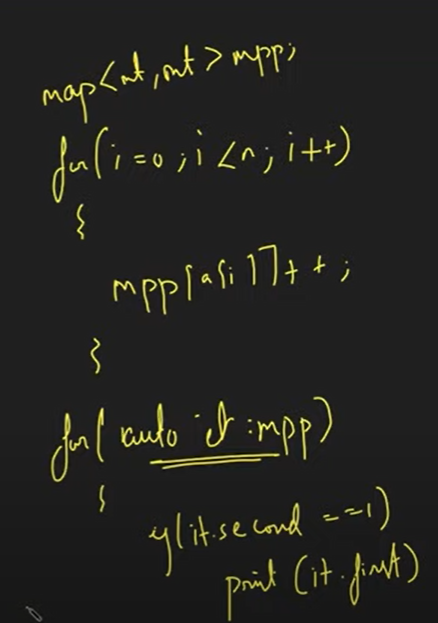 map<int,int> mpp;
for(i=0;i<n;i++)
{
mpp[a[i]]++;
}
for(auto it:mpp)
{
if(it.second==1)
print(it.first)